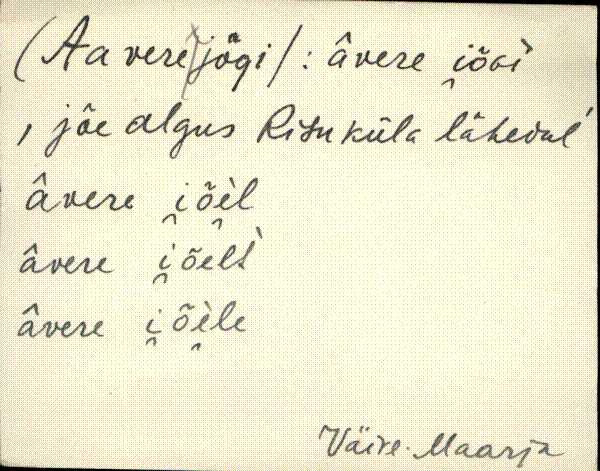 (Aavere jõgi/: âvere i̯õɢì
, jõe algus Risu küla lähedal'
âvere i̯õe̯l
âvere i̯õelt̀
âvere i̯õe̯le
Väike-Maarja